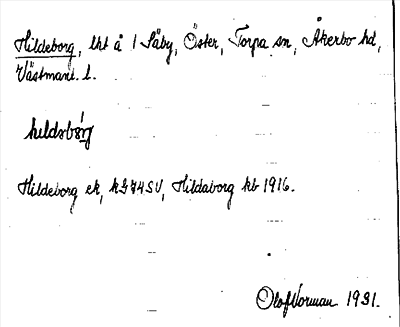 Hildeborg, lht å 1 Såby, Öster, Torpa sn, Åkerbo hd,
Västmanl. l.
hìldsbórg
Hildeborg ek, kG74SV, Hildaborg kb 1916.
Olof Norman 1931.